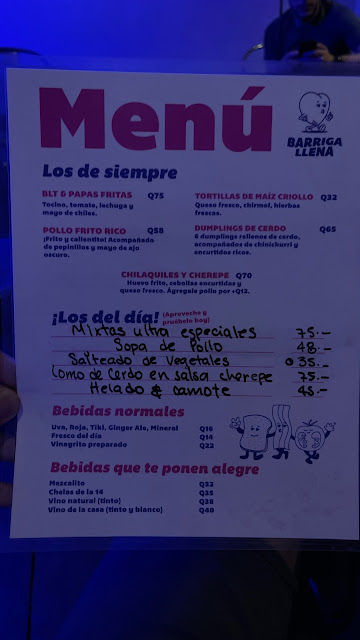 Menú
BARRIGA
LLENA
Los de siempre
BLT & PAPAS FRITAS Q75
Tocino, tomate, lechuga y
mayo de chiles.
TORTILLAS DE MAÍZ CRIOLLO Q32
Queso fresco, chirmol, hierbas
frescas.
POLLO FRITO RICO Q58
¡Frito y calientito! Acompañado
de pepinillos y mayo de ajo
oscuro.
DUMPLINGS DE CERDO Q65
6 dumplings rellenos de cerdo,
acompañados de chinichurri y
encurtidos ricos.
CHILAQUILES Y CHEREPE Q70
Huevo frito, cebollas encurtidas y
queso fresco. Agregale pollo por +Q12.
¡Los del día! (Aproveche y
pruébelo hoy)
Mixtas ultra especiales 75.-
Sopa de Pollo 48.-
Salteado de vegetales 35.-
Lomo de Cerdo en salsa cherepe 75.-
Helado & camote 45.-
Bebidas normales
Uva, Roja, Tiki, Ginger Ale, Mineral Q16
Fresco del día Q14
Vinagrito preparado Q22
Bebidas que te ponen alegre
Mezcalito Q32
Chelas de la 14 Q35
Vino natural (tinto) Q38
Vino de la casa (tinto y blanco) Q40